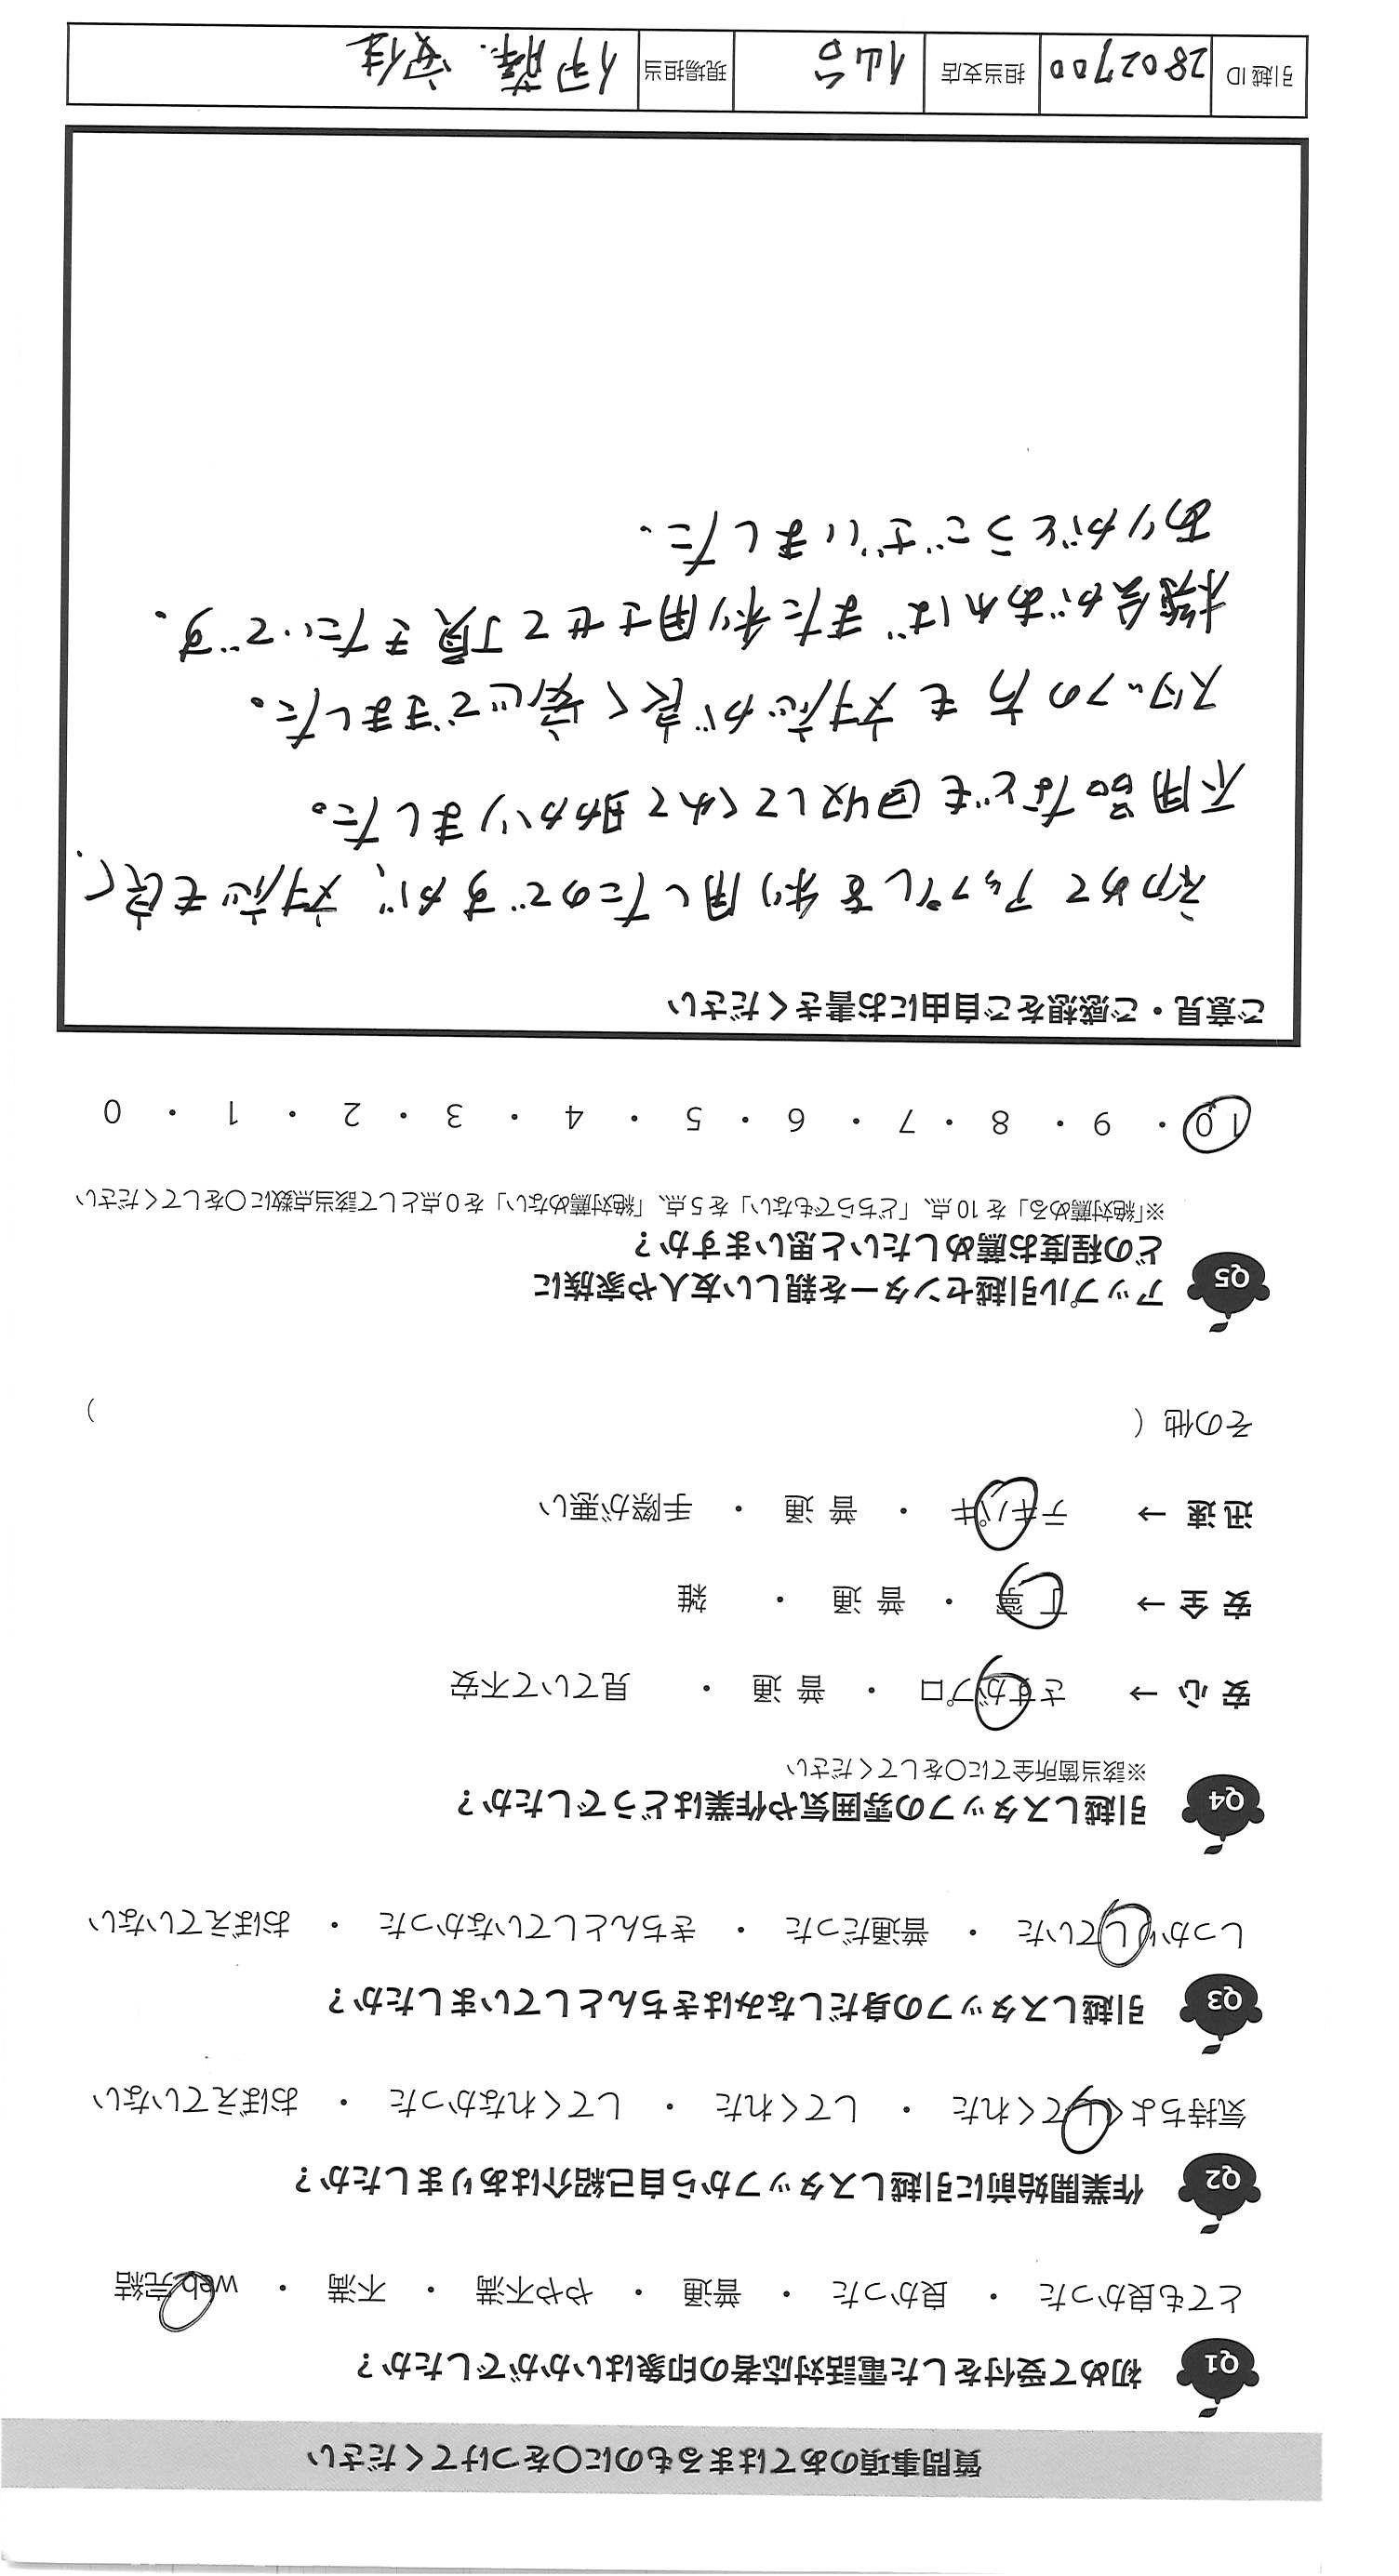 質問事項のあてはまるものに〇をつけてください
Q1 初めて受付をした電話対応者の印象はいかがでしたか?
とても良かった ・ 良かった ・ 普通 ・ やや不満 ・ 不満 ・ web完結
Q2 作業開始前に引越しスタッフから自己紹介はありましたか?
気持ちよくしてくれた ・ してくれた ・ してくれなかった ・ おぼえていない
Q3 引越しスタッフの身だしなみはきちんとしていましたか?
しっかりしていた ・ 普通だった ・ きちんとしていなかった ・ おぼえていない
Q4 引越しスタッフの雰囲気や作業はどうでしたか?
※該当箇所全てに〇をしてください
安心 → さすがプロ ・ 普通 ・ 見ていて不安
安全 → 丁寧 ・ 普通 ・ 雑
迅速 → テキパキ ・ 普通 ・ 手際が悪い
その他 ( )
Q5 アップル引越センターを親しい友人や家族に
どの程度お薦めしたいと思いますか?
※「絶対薦める」を10点、「どちらでもない」を5点、「絶対薦めない」を0点として該当点数に〇をしてください
10 ・ 9 ・ 8 ・ 7 ・ 6 ・ 5 ・ 4 ・ 3 ・ 2 ・ 1 ・ 0
ご意見・ご感想をご自由にお書きください
初めてアップルを利用したのですが、対応も良く、
不用品なども回収してくれて助かりました。
スタッフの方も対応が良く安心できました。
機会があればまた利用させて頂きたいです。
ありがとうございました。
引越ID 2802700 担当支店 仙台 現場担当 伊藤、安住